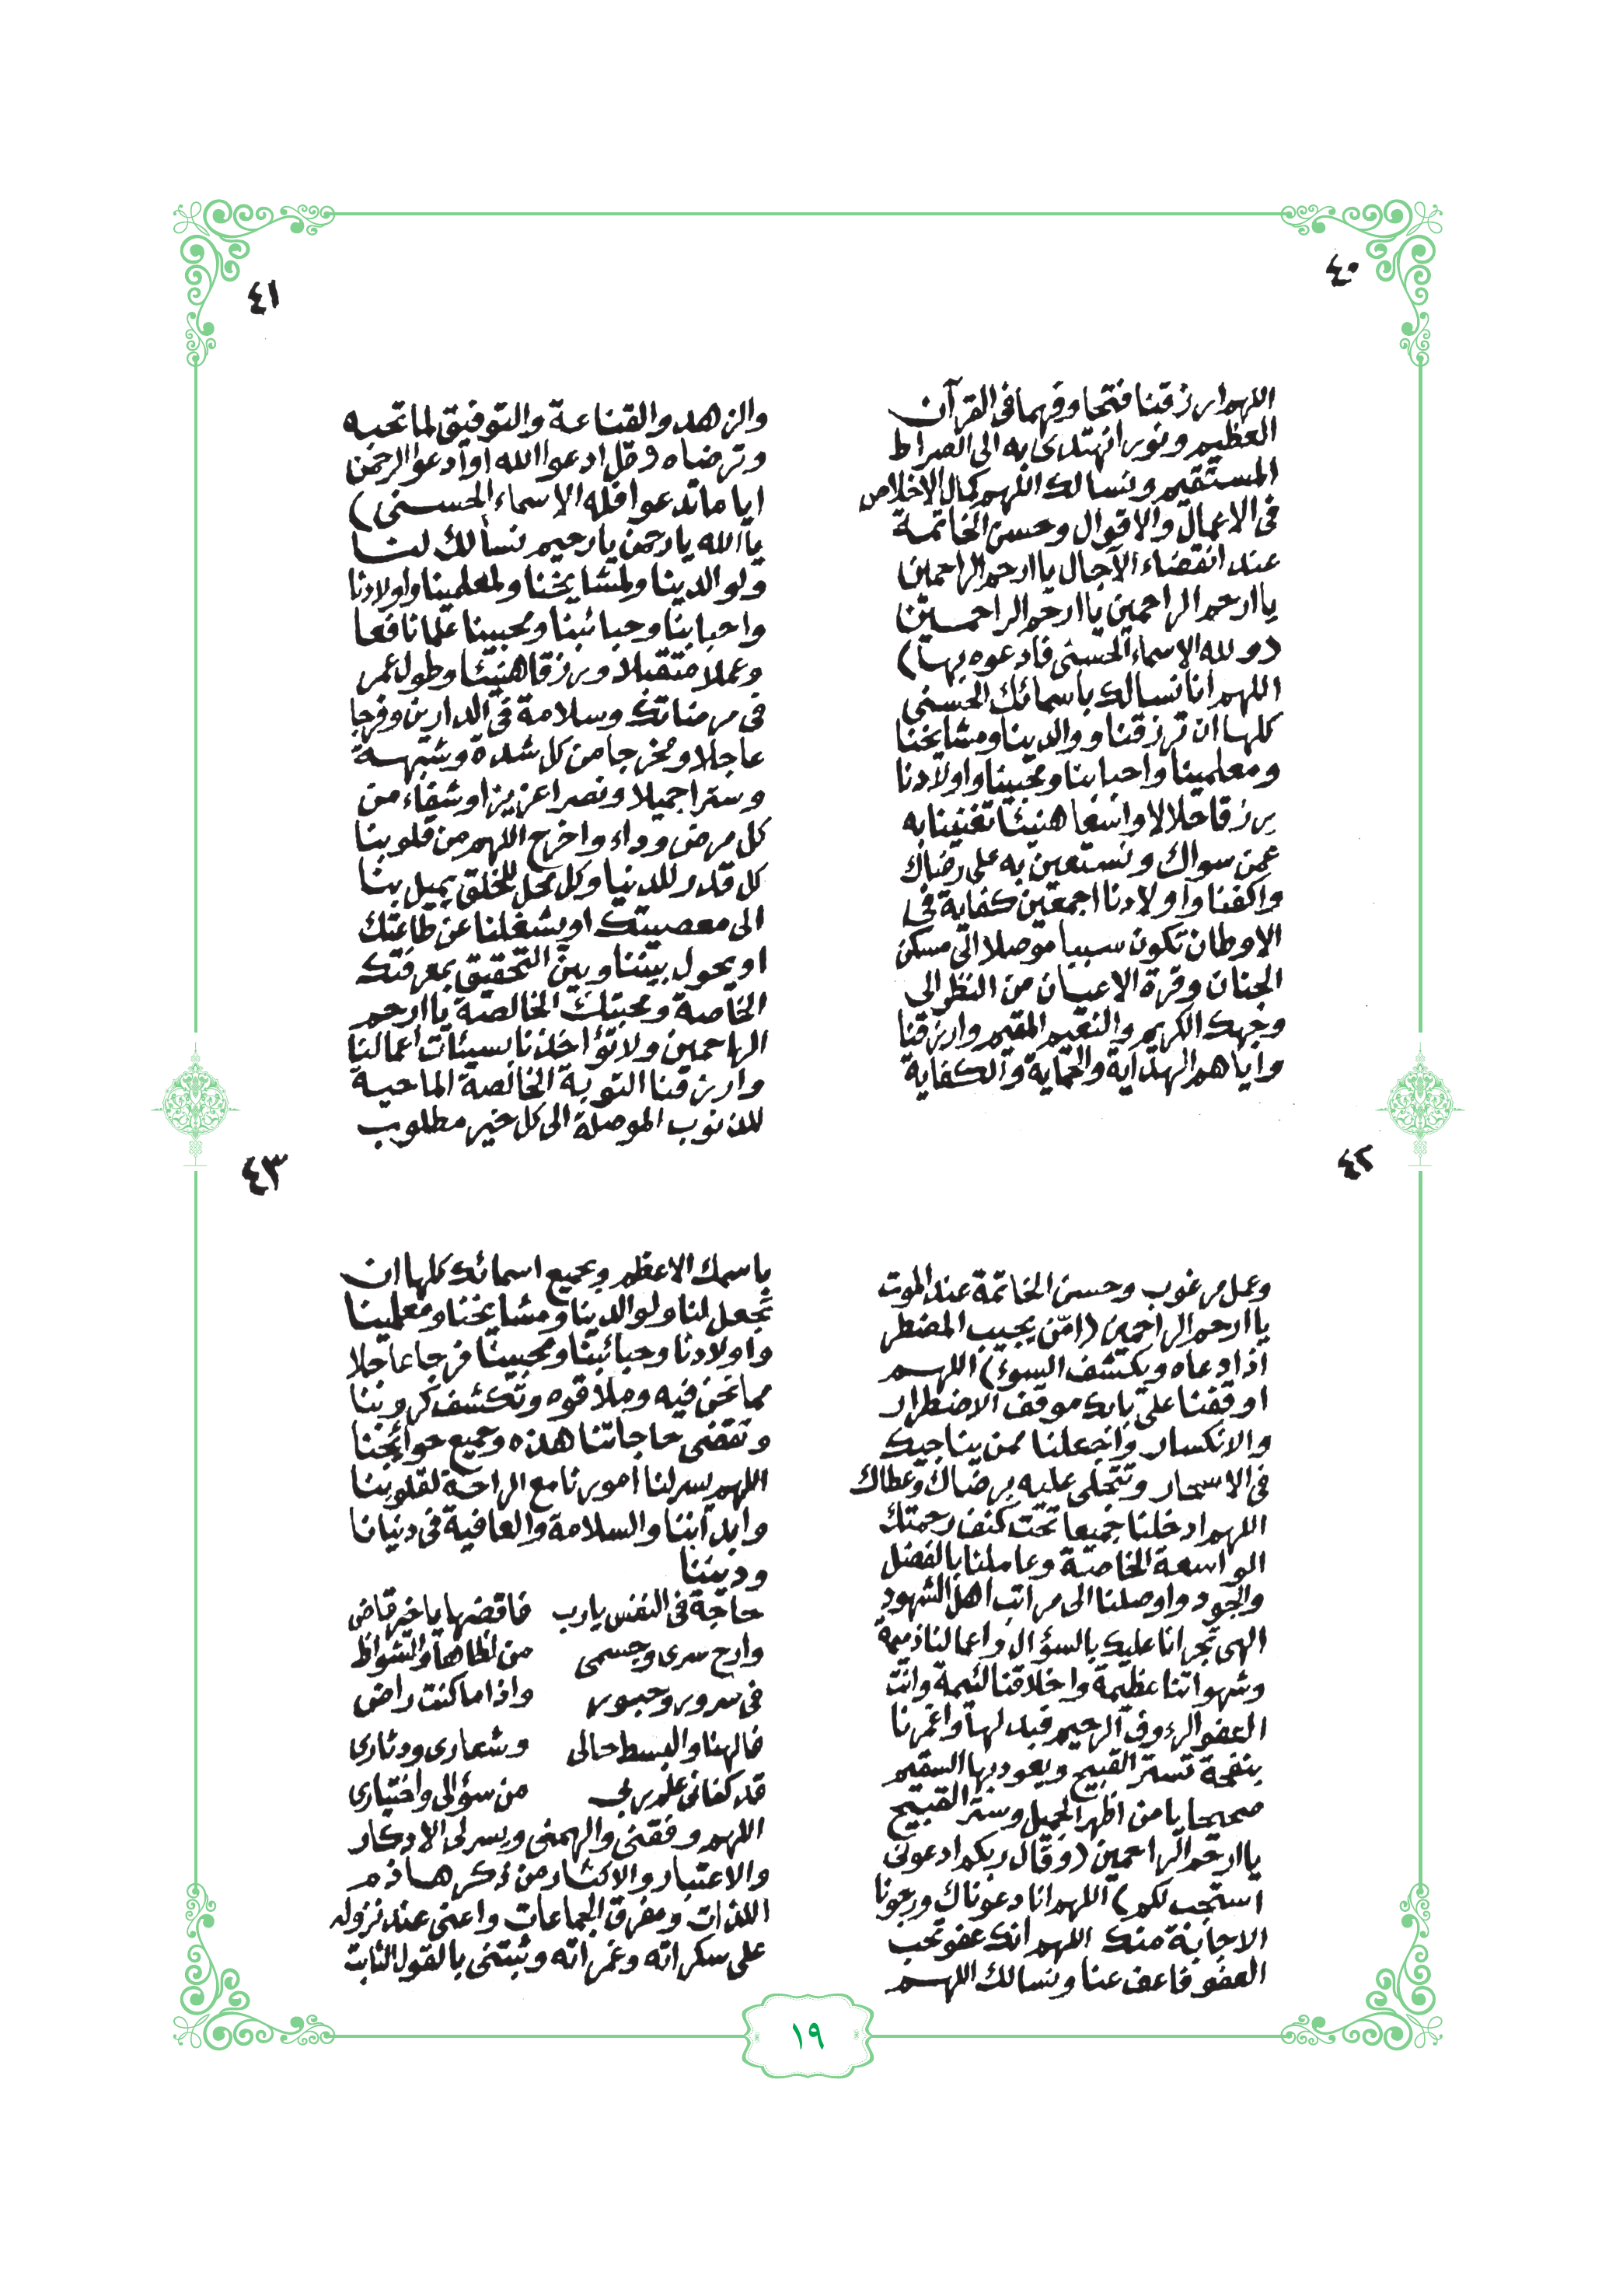 ٤٠
اللهم ارزقنا فتحا وفهما في القرآن
العظيم ونورا نهتدى به الى الصراط
المستقيم ونسالك اللهم كمال الاخلاص
في الاعمال والاقوال وحسن الخاتمة
عند انقضاء الآجال يا ارحم الراحمين
يا ارحم الراحمين يا ارحم الراحمين
(ولله الاسماء الحسنى فادعوه بها)
اللهم انا نسالك باسمائك الحسنى
كلها ان ترزقنا ووالدينا ومشايخنا
ومعلمينا واحبابنا ومحبينا واولادنا
رزقا حلالا واسعا هنيئا تغنينا به
عمن سواك ونستعين به على رضاك
واكفنا واولادنا اجمعين كفاية في
الاوطان تكون سببا موصلا الى مسكن
الجنان وقرة الاعيان من النظر الى
وجهك الكريم والنعيم المقيم وارزقنا
واياهم الهداية والحماية والكفاية
٤١
والزهد والقناعة والتوفيق لما تحبه
وترضاه (قل ادعوا الله او ادعوا الرحمن
ايا ما تدعوا فله الاسماء الحسنى)
يا الله يا رحمن يا رحيم نسألك لنا
ولوالدينا ولمشايخنا ولمعلمينا واولادنا
واحبابنا وحبائبنا ومحبينا علما نافعا
وعملا متقبلا ورزقا هنيئا وطول عمر
في مرضاتك وسلامة في الدارين وفرجا
عاجلا ومخرجا من كل شدة وشبهة
وسترا جميلا ونصرا عزيزا وشفاء من
كل مرض وداء واخرج اللهم من قلوبنا
كل قدر للدنيا وكل محل للخلق يميل بنا
الى معصيتك او يشغلنا عن طاعتك
او يحول بيننا وبين التحقيق بمعرفتك
الخاصة ومحبتك الخالصة يا ارحم
الراحمين ولا تؤاخذنا بسيئات اعمالنا
وارزقنا التوبة الخالصة الماحية
للذنوب الموصلة الى كل خير مطلوب
٤٢
وعمل مرغوب وحسن الخاتمة عند الموت
يا ارحم الراحمين (امّن يجيب المضطر
اذا دعاه ويكشف السوء) اللهم
اوقفنا على بابك موقف الاضطرار
والانكسار واجعلنا ممن يناجيك
في الاسحار وتتجلى عليه برضاك وعطاك
اللهم ادخلنا جميعا تحت كنف رحمتك
الواسعة الخاصة وعاملنا بالفضل
والجود واوصلنا الى مراتب اهل الشهود
الهى تجرانا عليك بالسؤال واعمالنا ذميمة
وشهواتنا عظيمة واخلاقنا لئيمة وانت
العفو الرءوف الرحيم فبدلها واغمرنا
بنفحة تستر القبيح ويعود بها السقيم
صحيحا يا من اظهر الجميل وستر القبيح
يا ارحم الراحمين (وقال ربكم ادعونى
استجب لكم) اللهم انا دعوناك ورجونا
الاجابة منك اللهم انك عفو تحب
العفو فاعف عنا ونسالك اللهم
٤٣
باسمك الاعظم وبجميع اسمائك كلها ان
تجعل لنا ولوالدينا ومشايخنا ومعلمينا
واولادنا وحبائبنا ومحبينا فرجا عاجلا
مما نحن فيه وملاقوه وتكشف كروبنا
وتقضى حاجاتنا هذه وجميع حوائجنا
اللهم يسر لنا امورنا مع الراحة لقلوبنا
وابداننا والسلامة والعافية في دنيانا
وديننا
حاجة في النفس يارب فاقضها يا خير قاض
وارح سرى وجسمى من لظاها والشواظ
في سرور وحبور واذا ما كنت راض
فالهنا والبسط حالى وشعارى ودثارى
قد كفانى علم ربي من سؤالى واختيارى
اللهم وفقنى والهمنى ويسر لى الادكار
والاعتبار والاكثار من ذكر هاذم
اللذات ومفرق الجماعات واعنى عند نزوله
على سكراته وغمراته وثبتنى بالقول الثابت
١٩